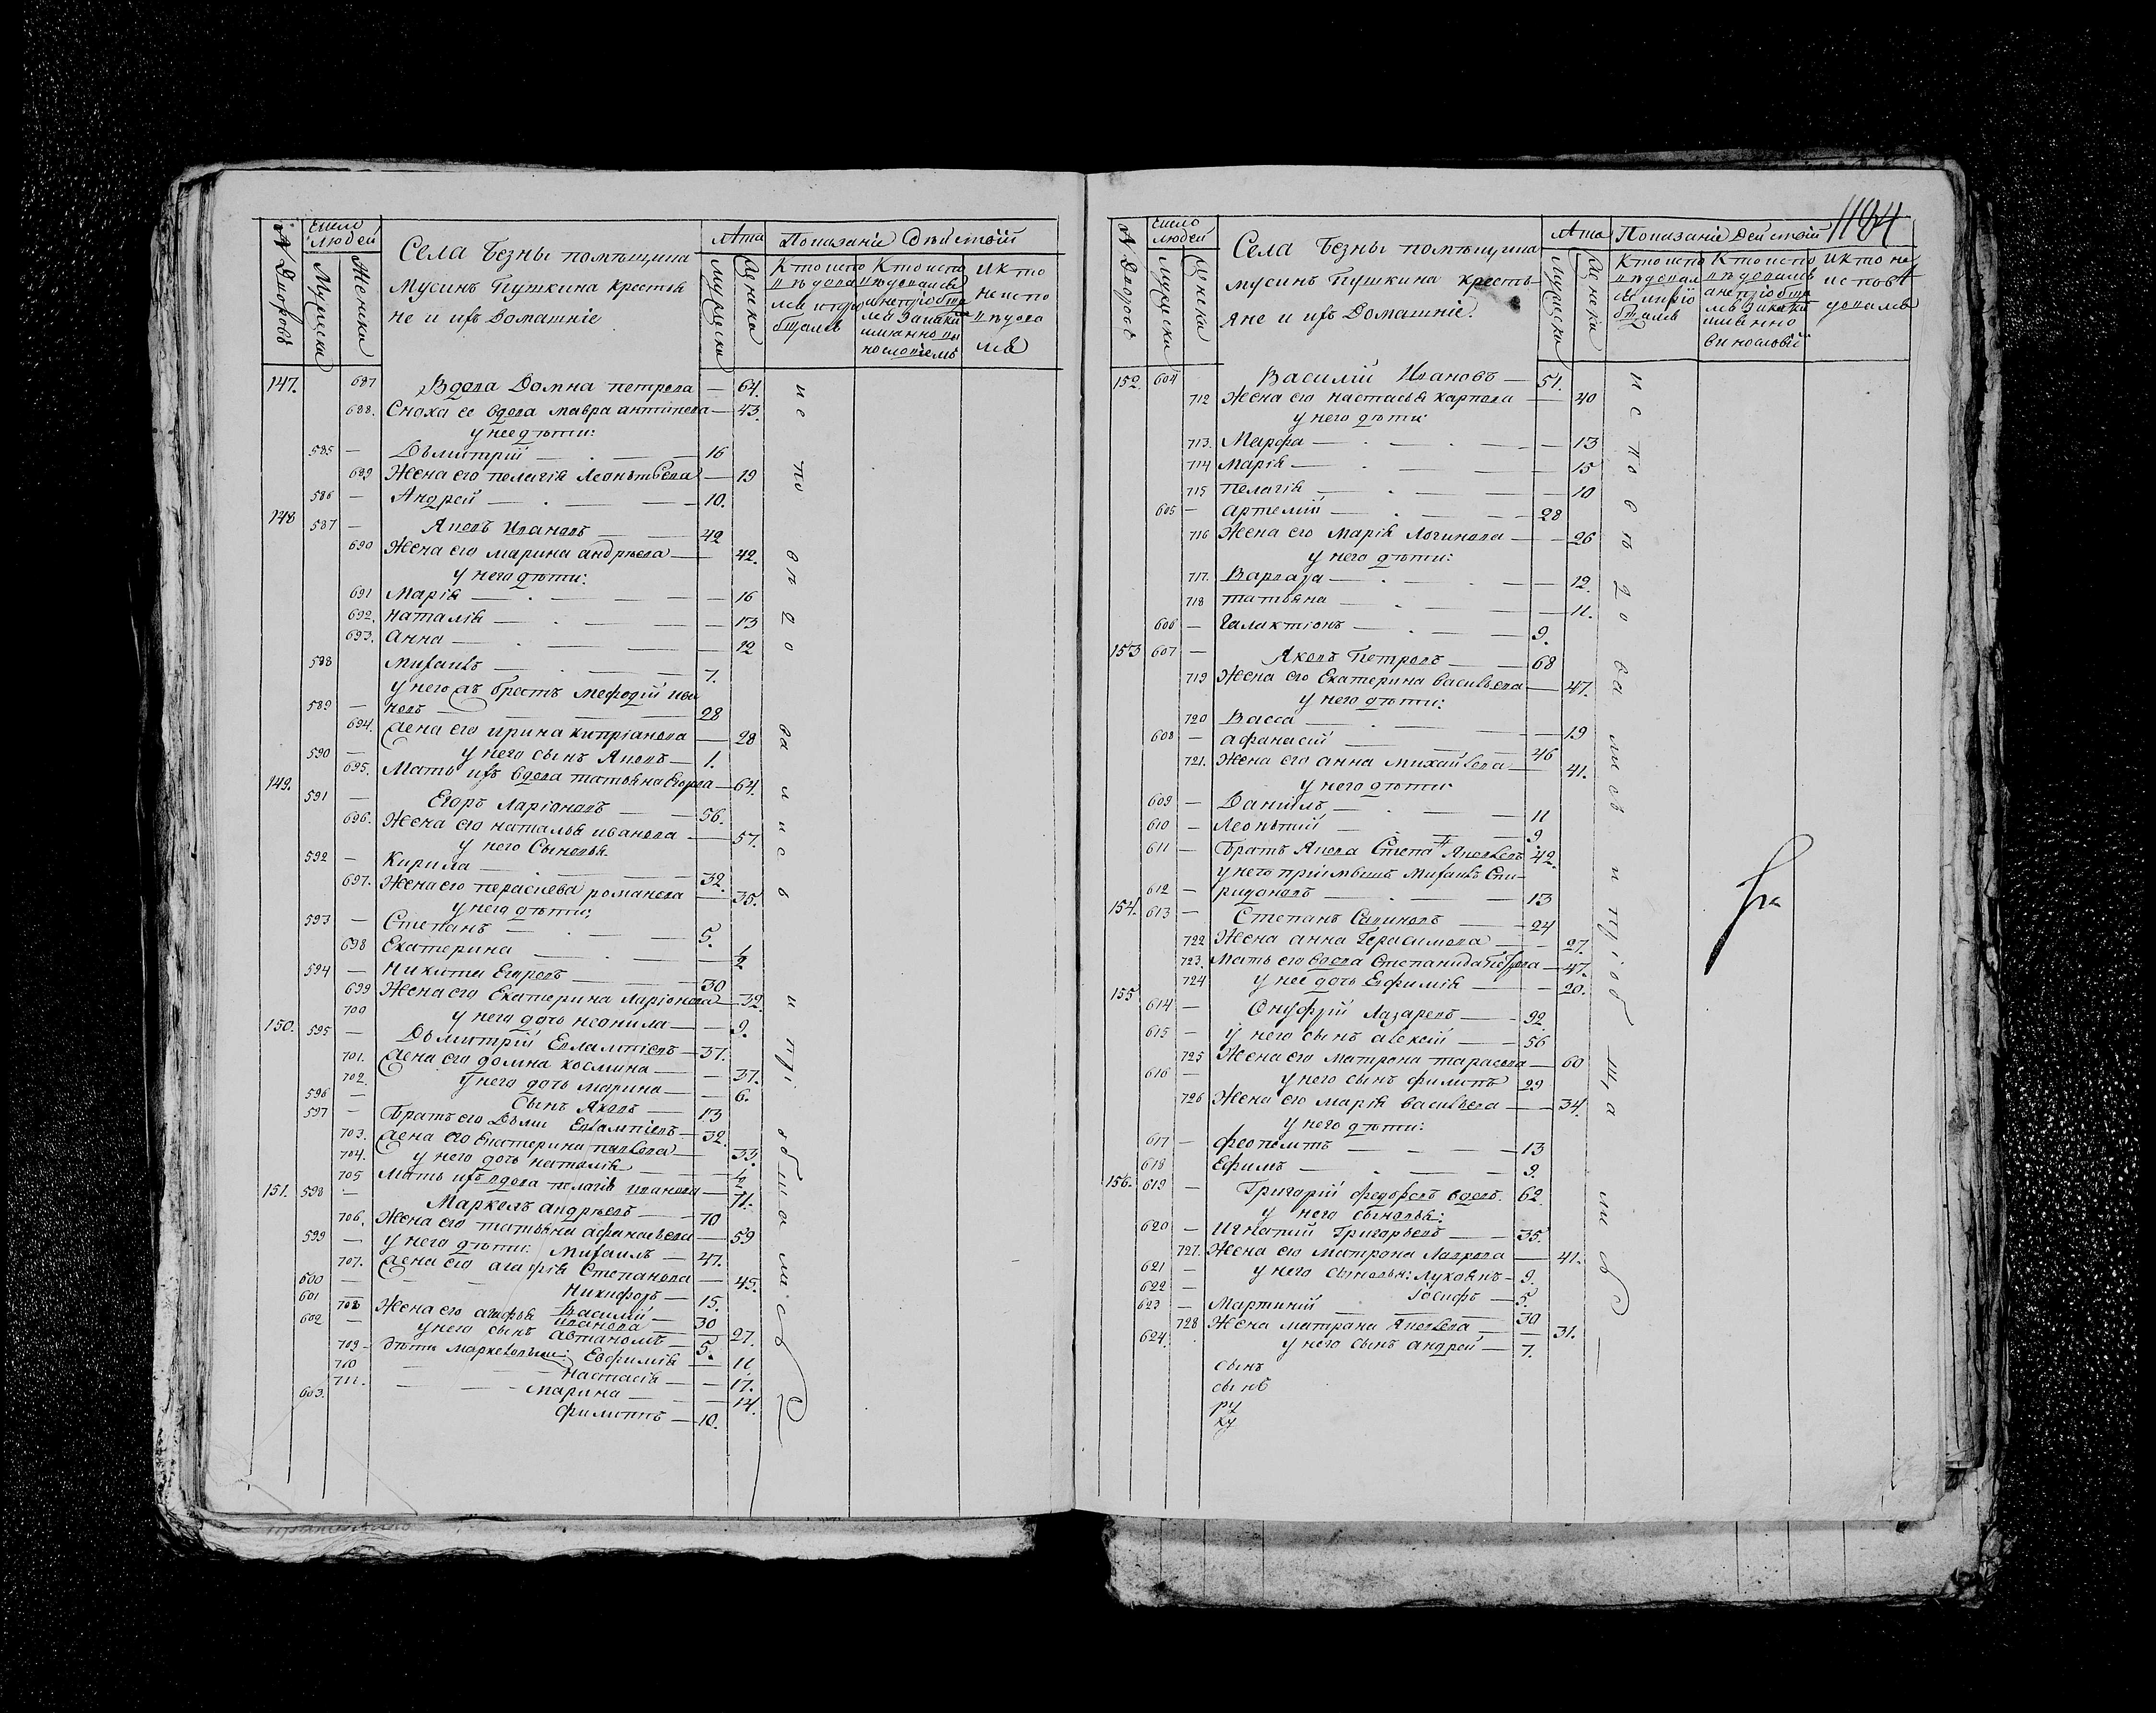 № Дворовъ
Число людей
Мужска
Женска
Села Бездны помѣщика
Мусинъ Пушкина крестья
не и ихъ Домашніе
Лѣта
Мужеска
Женска
Показаніе Дѣйствій
147. 687 Вдова Домна петрова — 64.
688. Сноха ее вдова мавра антипова — 43.
у нее дѣти:
585 — Дьмитрій — 16
689 Жена его пелагія Леонтьева — 19
586 — Андрей — 10.
148 587 — Яковъ Ивановъ — 42
690 Жена его марина андрѣева — 42.
у него дѣти:
691 Марія — 16
692. наталія — 13
693. анна — 12
588 Михаилъ — 7.
у него жъ братъ мефодій ива
589 — новъ — 28
694. жена его ирина кипріанова — 28
590 — у него сынъ Яковъ — 1.
695. Мать ихъ вдова татьяна Егорова — 64.
149. 591 — Егоръ Ларіоновъ — 56.
696. Жена его наталья иванова — 57.
у него Сыновья
592 — Кирила — 32.
697. Жена его парасковья романова — 35.
у него дѣти:
593 — Степанъ — 5.
698 Екатерина — ½
594 — Никита Егоровъ — 30
699 Жена его Екатерина Ларіонова — 32.
700 у него дочь неонила — 9.
150. 595 — Дьмитрій Евлампіевъ — 37.
701. жена его домна космина — 37.
702. у него дочь марина — 6.
596 — Сынъ Яковъ — 13
597 — Братъ его Евлампіевъ — 32.
703. жена его Екатерина павлова — 33.
704. у него дочь наталія — ½
705 Мать ихъ вдова пелагія иванова — 71.
151. 598 — Маркелъ андрѣевъ — 70
706. Жена его татьяна афанасьева — 59
599 — у него дѣти: Михаилъ — 47.
707. жена его агафія Степанова — 45.
600 — Никифоръ — 15.
601 — Василій — 30
708 Жена его агафья иванова — 27.
602 — у него сынъ автаномъ — 5.
709 - дѣти маркеловы: Евфимія — 11
710 — настасія — 17.
711. — марина — 14.
603. филиппъ — 10.
исповѣдовались и пріобщались
1184
№ Дворовъ
Число людей
Мужска
Женска
Села Бездны помѣщика
мусинъ Пушкина кресть
яне и ихъ Домашніе.
Лѣта
Мужеска
Женска
Показаніе Дѣйствій
152. 604 Василій Ивановъ — 51.
712 Жена его настасья карпова — 40
у него дѣти:
713. Марфа — 13
714 Марія — 15
715 пелагія — 10
605 — артемій — 28
716 Жена его Марія Логинова — 26
у него дѣти:
717. Варвара — 12.
718 татьяна — 11.
606 — Галактіонъ — 9.
153 607 — Яковъ Петровъ — 68
719 Жена его Екатерина васильева — 47.
у него дѣти:
720 Васса — 19
608 — афанасій — 46
721. Жена его анна михайлова — 41.
у него дѣти:
609 — Данилъ — 11
610 — Леонтій — 9
611 — Братъ Якова Степанъ Яковлевъ 42.
у него пріемышъ Михаилъ Спи-
612 — ридоновъ — 13
154. 613 — Степанъ Савиновъ — 24
722 Жена анна Герасимова — 27.
723. Мать его вдова Степанида Петрова — 47.
724 у нее дочь Евфимія — 20.
155 614 — Онуфрій Лазаревъ — 92
615 — у него сынъ алексій — 56
725 Жена его матрона тарасова — 60
616 — у него сынъ филиппъ 29
726 Жена его марія васильева — 34.
у него дѣти:
617 — феопемптъ — 13
618 Ефимъ — 9.
156. 619 — Григорій федоровъ вдовъ. 62.
у него сыновья:
620 — Игнатій Григорьевъ — 35.
727. Жена его матрона Лаврова — 41.
621 — у него сыновья: Лукоянъ — 9.
622 — Іосифъ — 5.
623 — Мартиній — 30
728 Жена матрона Яковлева — 31.
624. у него сынъ андрей — 7.
сынъ
сынъ
ру
ку
исповѣдовались и пріобщались